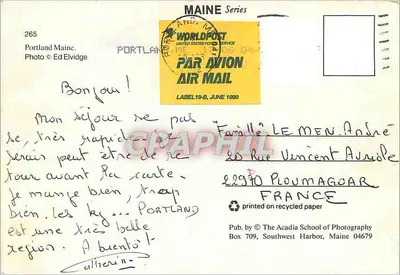 MAINE Series
265
Portland Maine.
Photo © Ed Elvidge
PORTLAND ME
WORLDPOST
UNITED STATES POSTAL SERVICE
PAR AVION
AIR MAIL
LABEL 19-B, JUNE 1990
Bonjour!
Mon séjour se pas
se, très rapide
serais peut être de re
tour avant la carte.
Je mange bien, trop
bien. les kg... PORTLAND
est une très belle
region. A bientôt!
Catherine
CPAPHIL
Famille LE MEN André
26 rue Vincent Auriole
22970 PLOUMAGOAR
FRANCE
printed on recycled paper
Pub. by © The Acadia School of Photography
Box 709, Southwest Harbor, Maine 04679